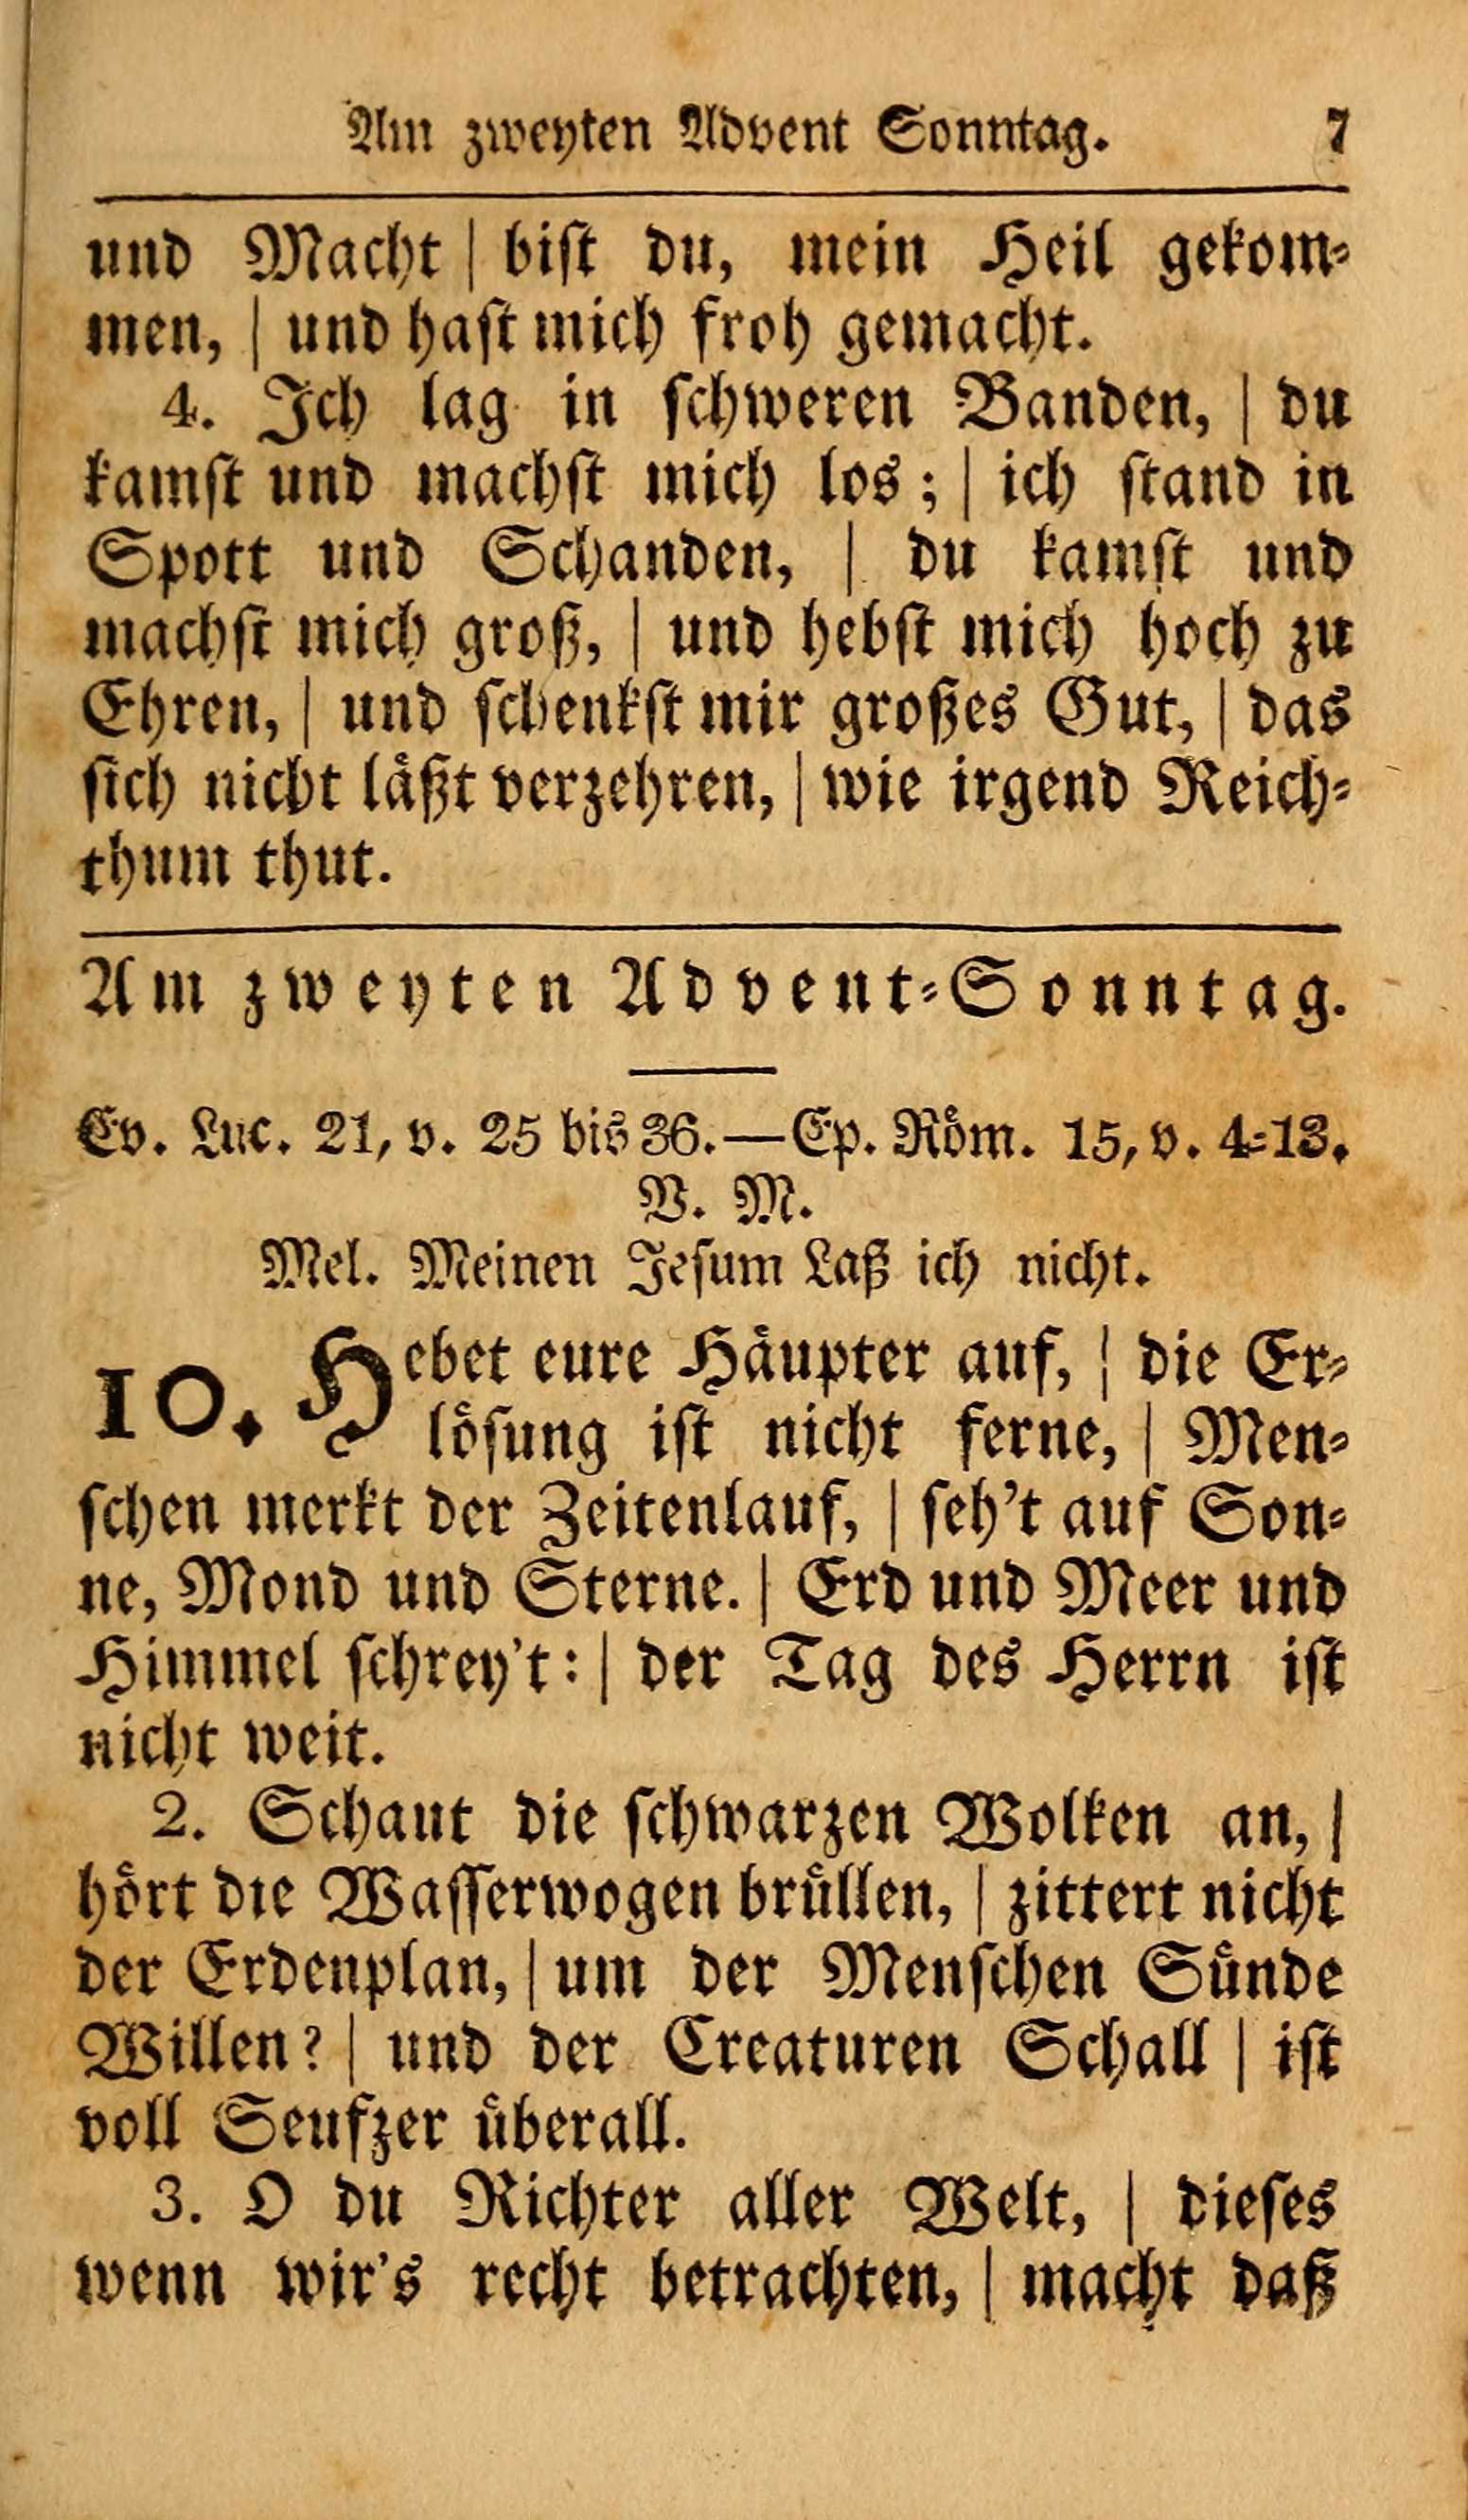 Am zweyten Advent Sonntag. 7
und Macht | bist du, mein Heil gekom-
men, | und hast mich froh gemacht.
4. Ich lag in schweren Banden, | du
kamst und machst mich los; | ich stand in
Spott und Schanden, | du kamst und
machst mich groß, | und hebst mich hoch zu
Ehren, | und schenkst mir großes Gut, | das
sich nicht läßt verzehren, | wie irgend Reich-
thum thut.
Am zweyten Advent-Sonntag.
Ev. Luc. 21, v. 25 bis 36.—Ep. Röm. 15, v. 4-13.
V. M.
Mel. Meinen Jesum Laß ich nicht.
10. Hebet eure Häupter auf, | die Er-
lösung ist nicht ferne, | Men-
schen merkt der Zeitenlauf, | seh't auf Son-
ne, Mond und Sterne. | Erd und Meer und
Himmel schrey't: | der Tag des Herrn ist
nicht weit.
2. Schaut die schwarzen Wolken an, |
hört die Wasserwogen brüllen, | zittert nicht
der Erdenplan, | um der Menschen Sünde
Willen? | und der Creaturen Schall | ist
voll Seufzer überall.
3. O du Richter aller Welt, | dieses
wenn wir's recht betrachten, | macht daß